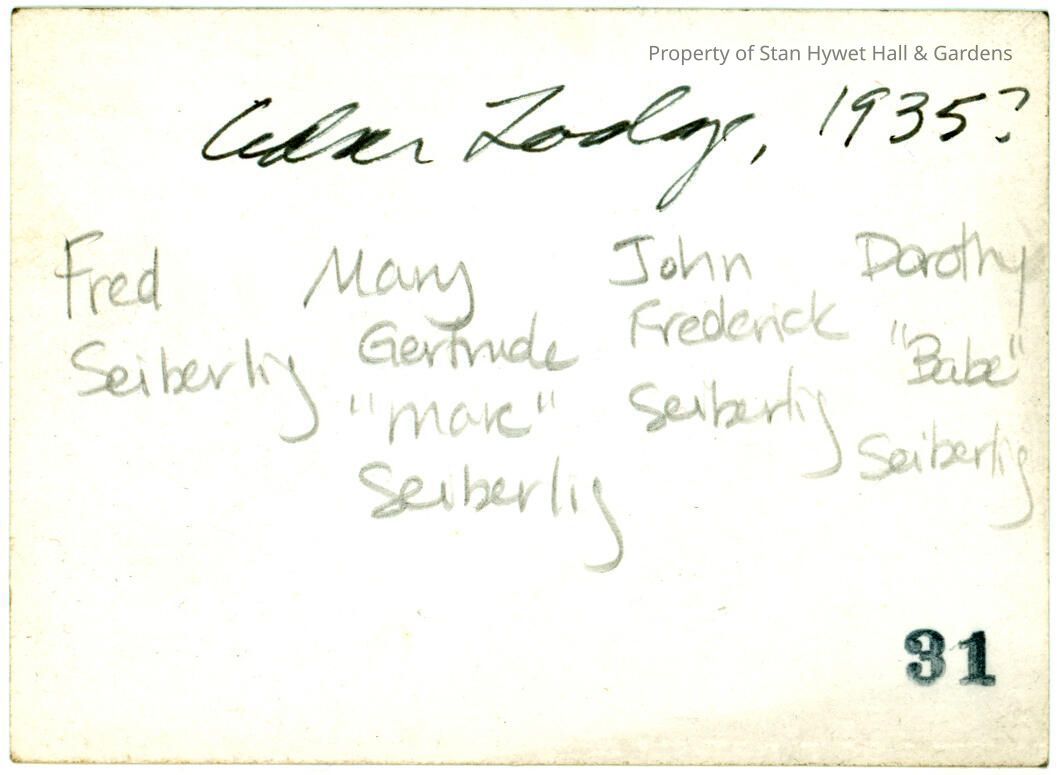 Property of Stan Hywet Hall & Gardens
Cedar Lodge, 1935?
Fred
Seiberlig
Mary
Gertrude
Seiberlig
John
Frederick
Seiberlig
Dorothy
"Babe"
Seiberlig
31